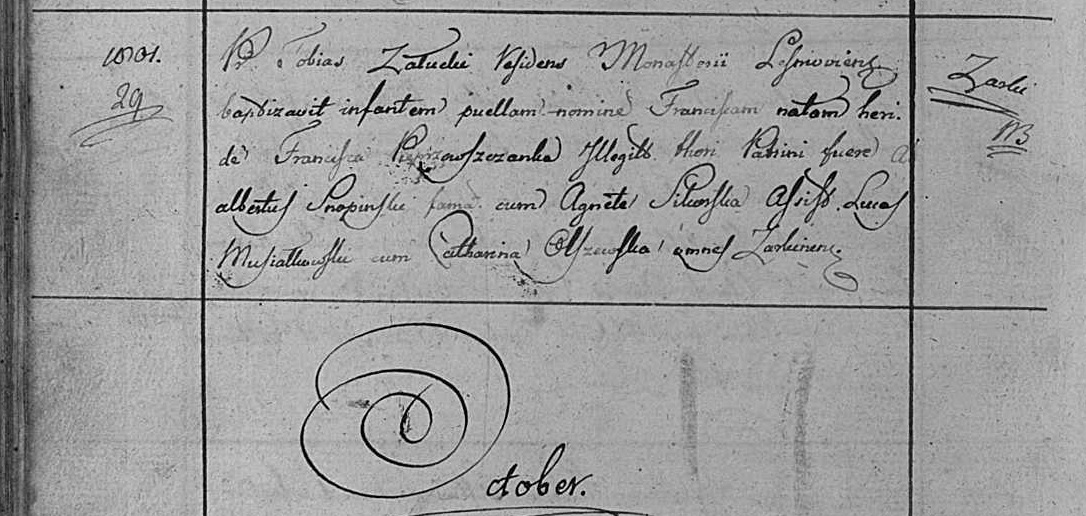 1801.
29
P. Tobias Załuckii Residens Monasterii Lesnioviens
baptizavit infantem puellam nomine Franciscam natam heri.
de Francisca Illegit. thori Patrini fuere A
albertus Snopinskii fama. cum Agnete Sikorska Assist. Lucas
Musiałkowskii cum Catharina Olszewska omnes Zarkinens.
Zarkii
NB
October.